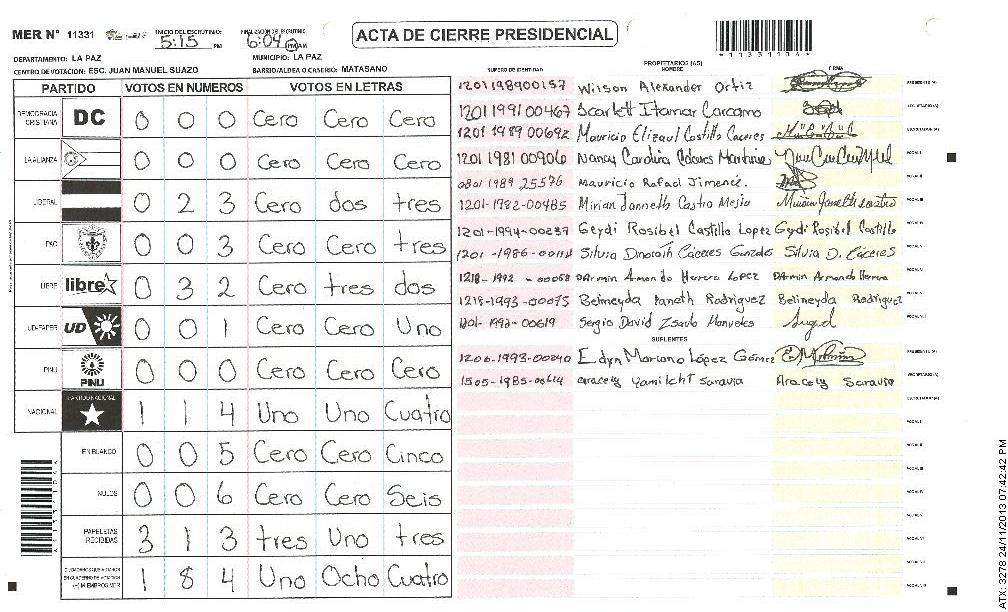 MER N° 11331 INICIO DEL ESCRUTINIO: 5:15 PM FINALIZACION DEL ESCRUTINIO: 6:04 PM AM
ACTA DE CIERRE PRESIDENCIAL
11331104
DEPARTAMENTO: LA PAZ MUNICIPIO: LA PAZ
CENTRO DE VOTACION: ESC. JUAN MANUEL SUAZO BARRIO/ALDEA O CASERIO: MATASANO
PARTIDO VOTOS EN NUMEROS VOTOS EN LETRAS
DEMOCRACIA CRISTIANA DC 0 0 0 Cero Cero Cero
LA ALIANZA 0 0 0 Cero Cero Cero
LIBERAL 0 2 3 Cero dos tres
PAC 0 0 3 Cero Cero tres
LIBRE libre 0 3 2 Cero tres dos
UD-FAPER UD 0 0 1 Cero Cero Uno
PINU PINU 0 0 0 Cero Cero Cero
NACIONAL PARTIDO NACIONAL 1 1 4 Uno Uno Cuatro
EN BLANCO 0 0 5 Cero Cero Cinco
NULOS 0 0 6 Cero Cero Seis
PAPELETAS RECIBIDAS 3 1 3 tres Uno tres
CIUDADANOS QUE VOTARON EN CUADERNO DE VOTACION (+) MIEMBROS MER 1 8 4 Uno Ocho Cuatro
NUMERO DE IDENTIDAD PROPIETARIOS (AS) NOMBRE FIRMA
1201198900157 Wilson Alexander Ortiz PRESIDENTE (A)
1201 1991 00467 Scarlett Itamar Carcamo SECRETARIO (A)
1201 1989 00692 Mauricio Elizaul Castillo Caceres ESCRUTADOR (A)
1201 1981 00906 Nancy Carolina Martinez VOCAL I
0801 1989 25576 Mauricio Rafael Jimenez. VOCAL II
1201-1982-00485 Mirian Janneth Castro Mejia VOCAL III
1201-1994-00237 Geydi Rosibel Castillo Lopez Geydi Rosibel Castillo VOCAL IV
1201-1986-00114 Silvia Dinorath Cáceres Gonzales Silvia D. Cáceres VOCAL V
1218-1992-00058 Darmin Amando Herrera Lopez Darmin Armando Herrera VOCAL VI
1218-1993-00075 Belineyda Rodriguez Belineyda Rodriguez VOCAL VII
1201-1992-00619 Sergio David VOCAL VIII
SUPLENTES
1206-1993-00240 Edyn Mariano López Gómez PRESIDENTE (A)
1505-1985-00614 aracely Yamileht Saravia Aracely Saravia SECRETARIO (A)
ESCRUTADOR (A)
VOCAL I
VOCAL II
VOCAL III
VOCAL IV
VOCAL V
VOCAL VI
VOCAL VII
VOCAL VIII
ATX: 3278 24/11/2013 07:42:42 PM